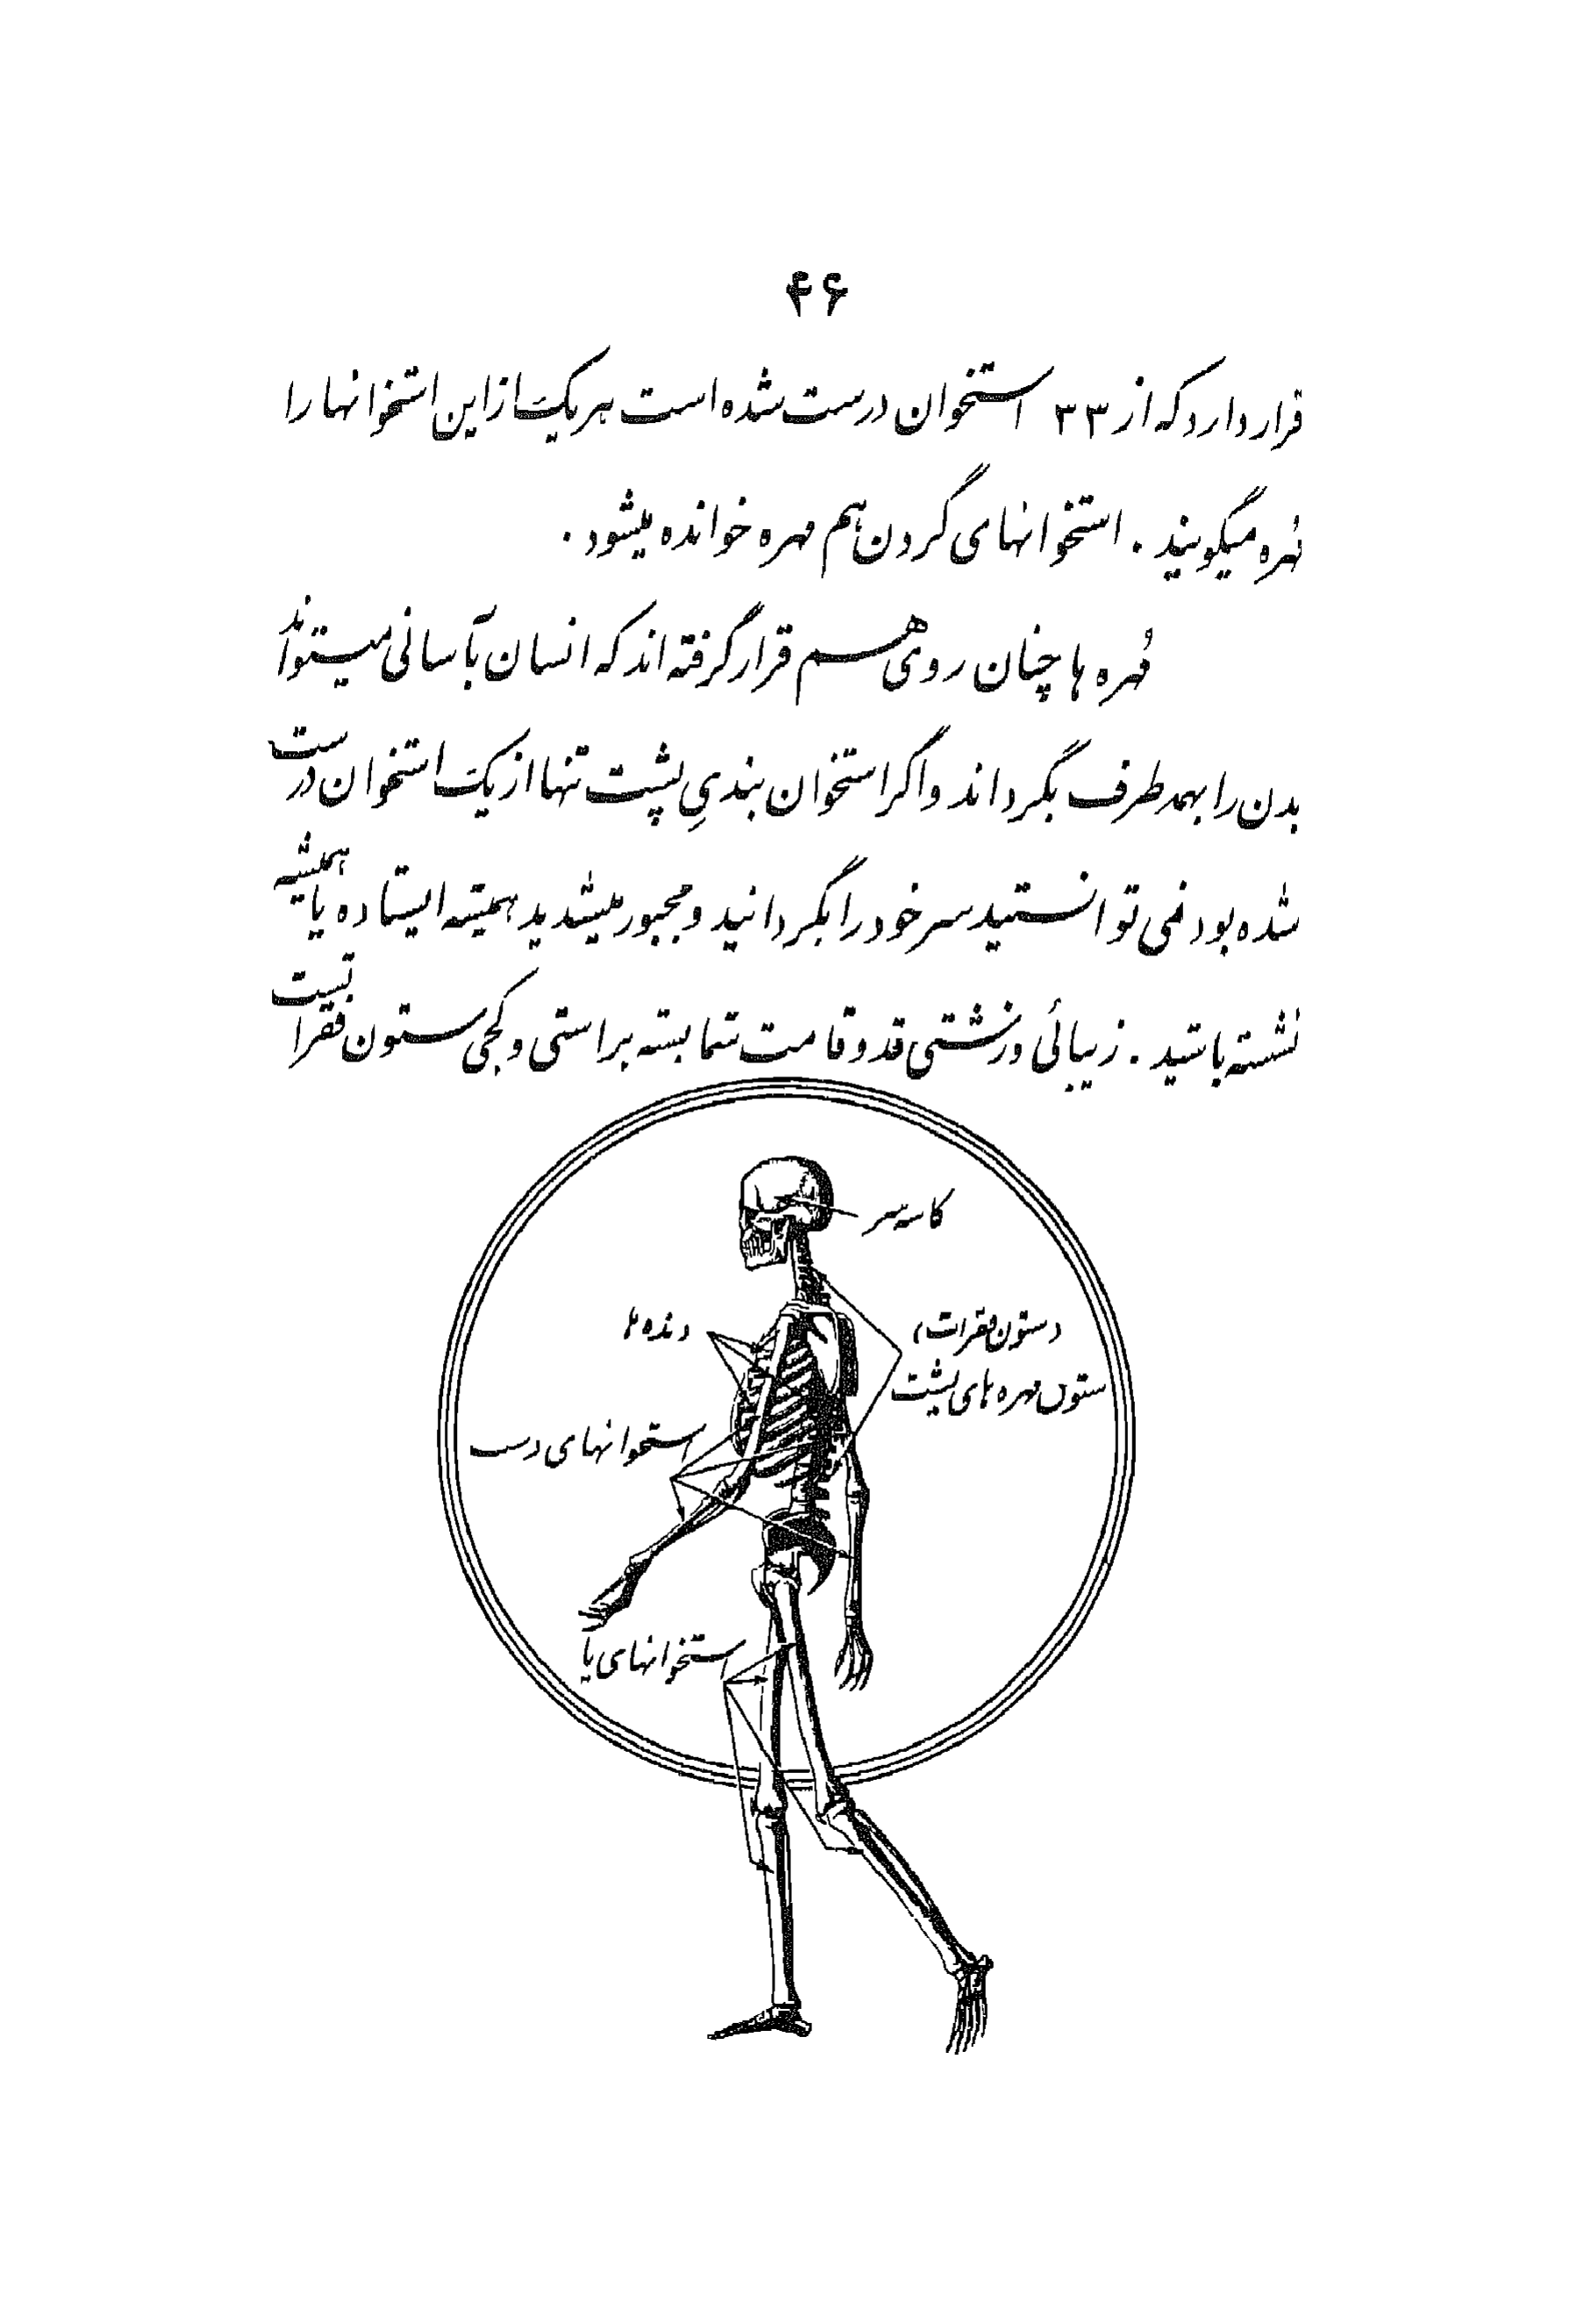 ۴۶
قرار دارد که از ۳۳ استخوان درست شده است هر یک از این استخوانها را
مُهره میگویند . استخوانهای گردن هم مهره خوانده میشود .
مُهره ها چنان روی هم قرار گرفته اند که انسان بآسانی میتواند
بدن را بهمه طرف بگرداند و اگر استخوان بندیِ پشت تنها از یک استخوان درست
شده بود نمی توانستید سر خود را بگردانید و مجبور میشدید همیشه ایستاده یا همیشه
نشسته باشید . زیبائی و زشتی قد و قامت شما بسته براستی و کجی ستون فقراتست
کاسه سر
دنده ها
(ستون فقرات)
ستون مهره های پشت
استخوانهای دست
استخوانهای پا